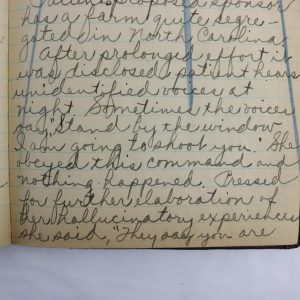 Patient's proposed sponsor
has a farm quite segre-
gated in North Carolina.
After prolonged effort it
was disclosed patient hears
unidentified voices at
night. Sometimes the voices
say, "Stand by the window
I am going to shoot you." She
obeyed this command and
nothing happened. Pressed
for further elaboration of
her hallucinatory experiences
she said, "They say you are